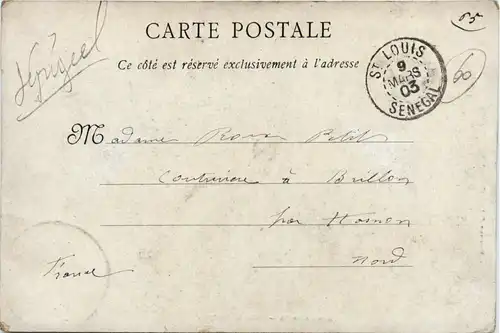 Sénégal
85
CARTE POSTALE
Ce côté est réservé exclusivement à l'adresse
ST LOUIS
9
MARS
03
SENEGAL
60
Madame Petit
Couturière à Brillon
par Hasnon
Nord
France